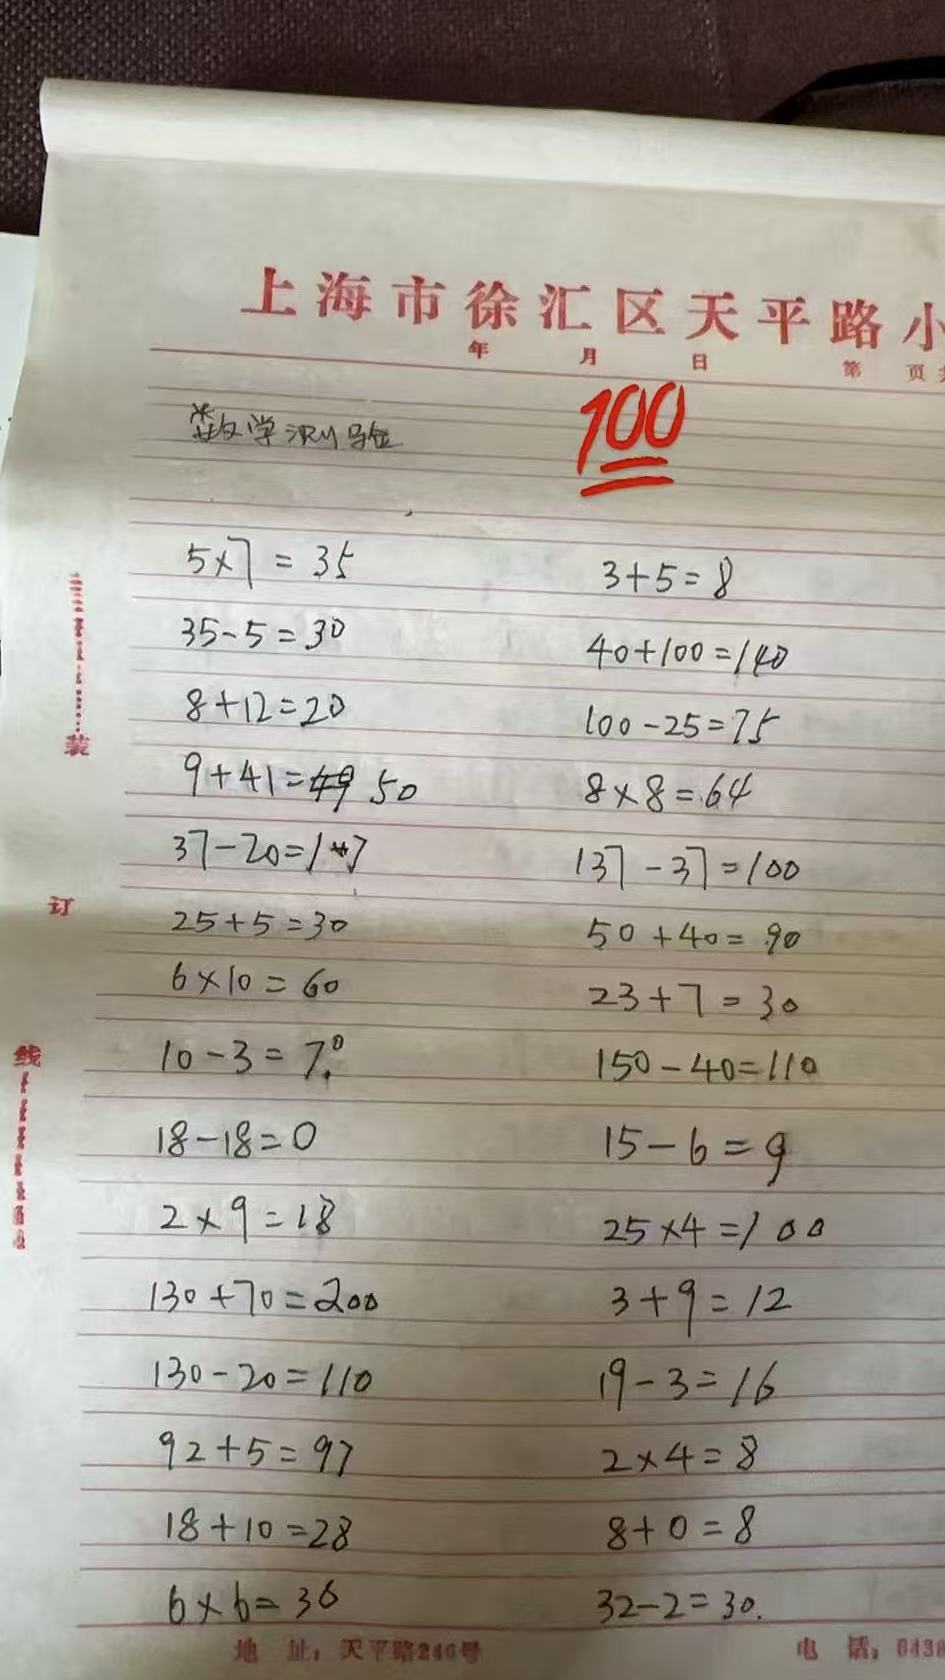 上海市徐汇区天平路小
年 月 日 第 页 共
数学测验 100
5×7=35 3+5=8
35-5=30 40+100=140
8+12=20 100-25=75
9+41=49 50 8×8=64
37-20=17 137-37=100
25+5=30 50+40=90
6×10=60 23+7=30
10-3=7 150-40=110
18-18=0 15-6=9
2×9=18 25×4=100
130+70=200 3+9=12
130-20=110 19-3=16
92+5=97 2×4=8
18+10=28 8+0=8
6×6=36 32-2=30.
装
订
线
地 址：天平路246号 电 话：6438